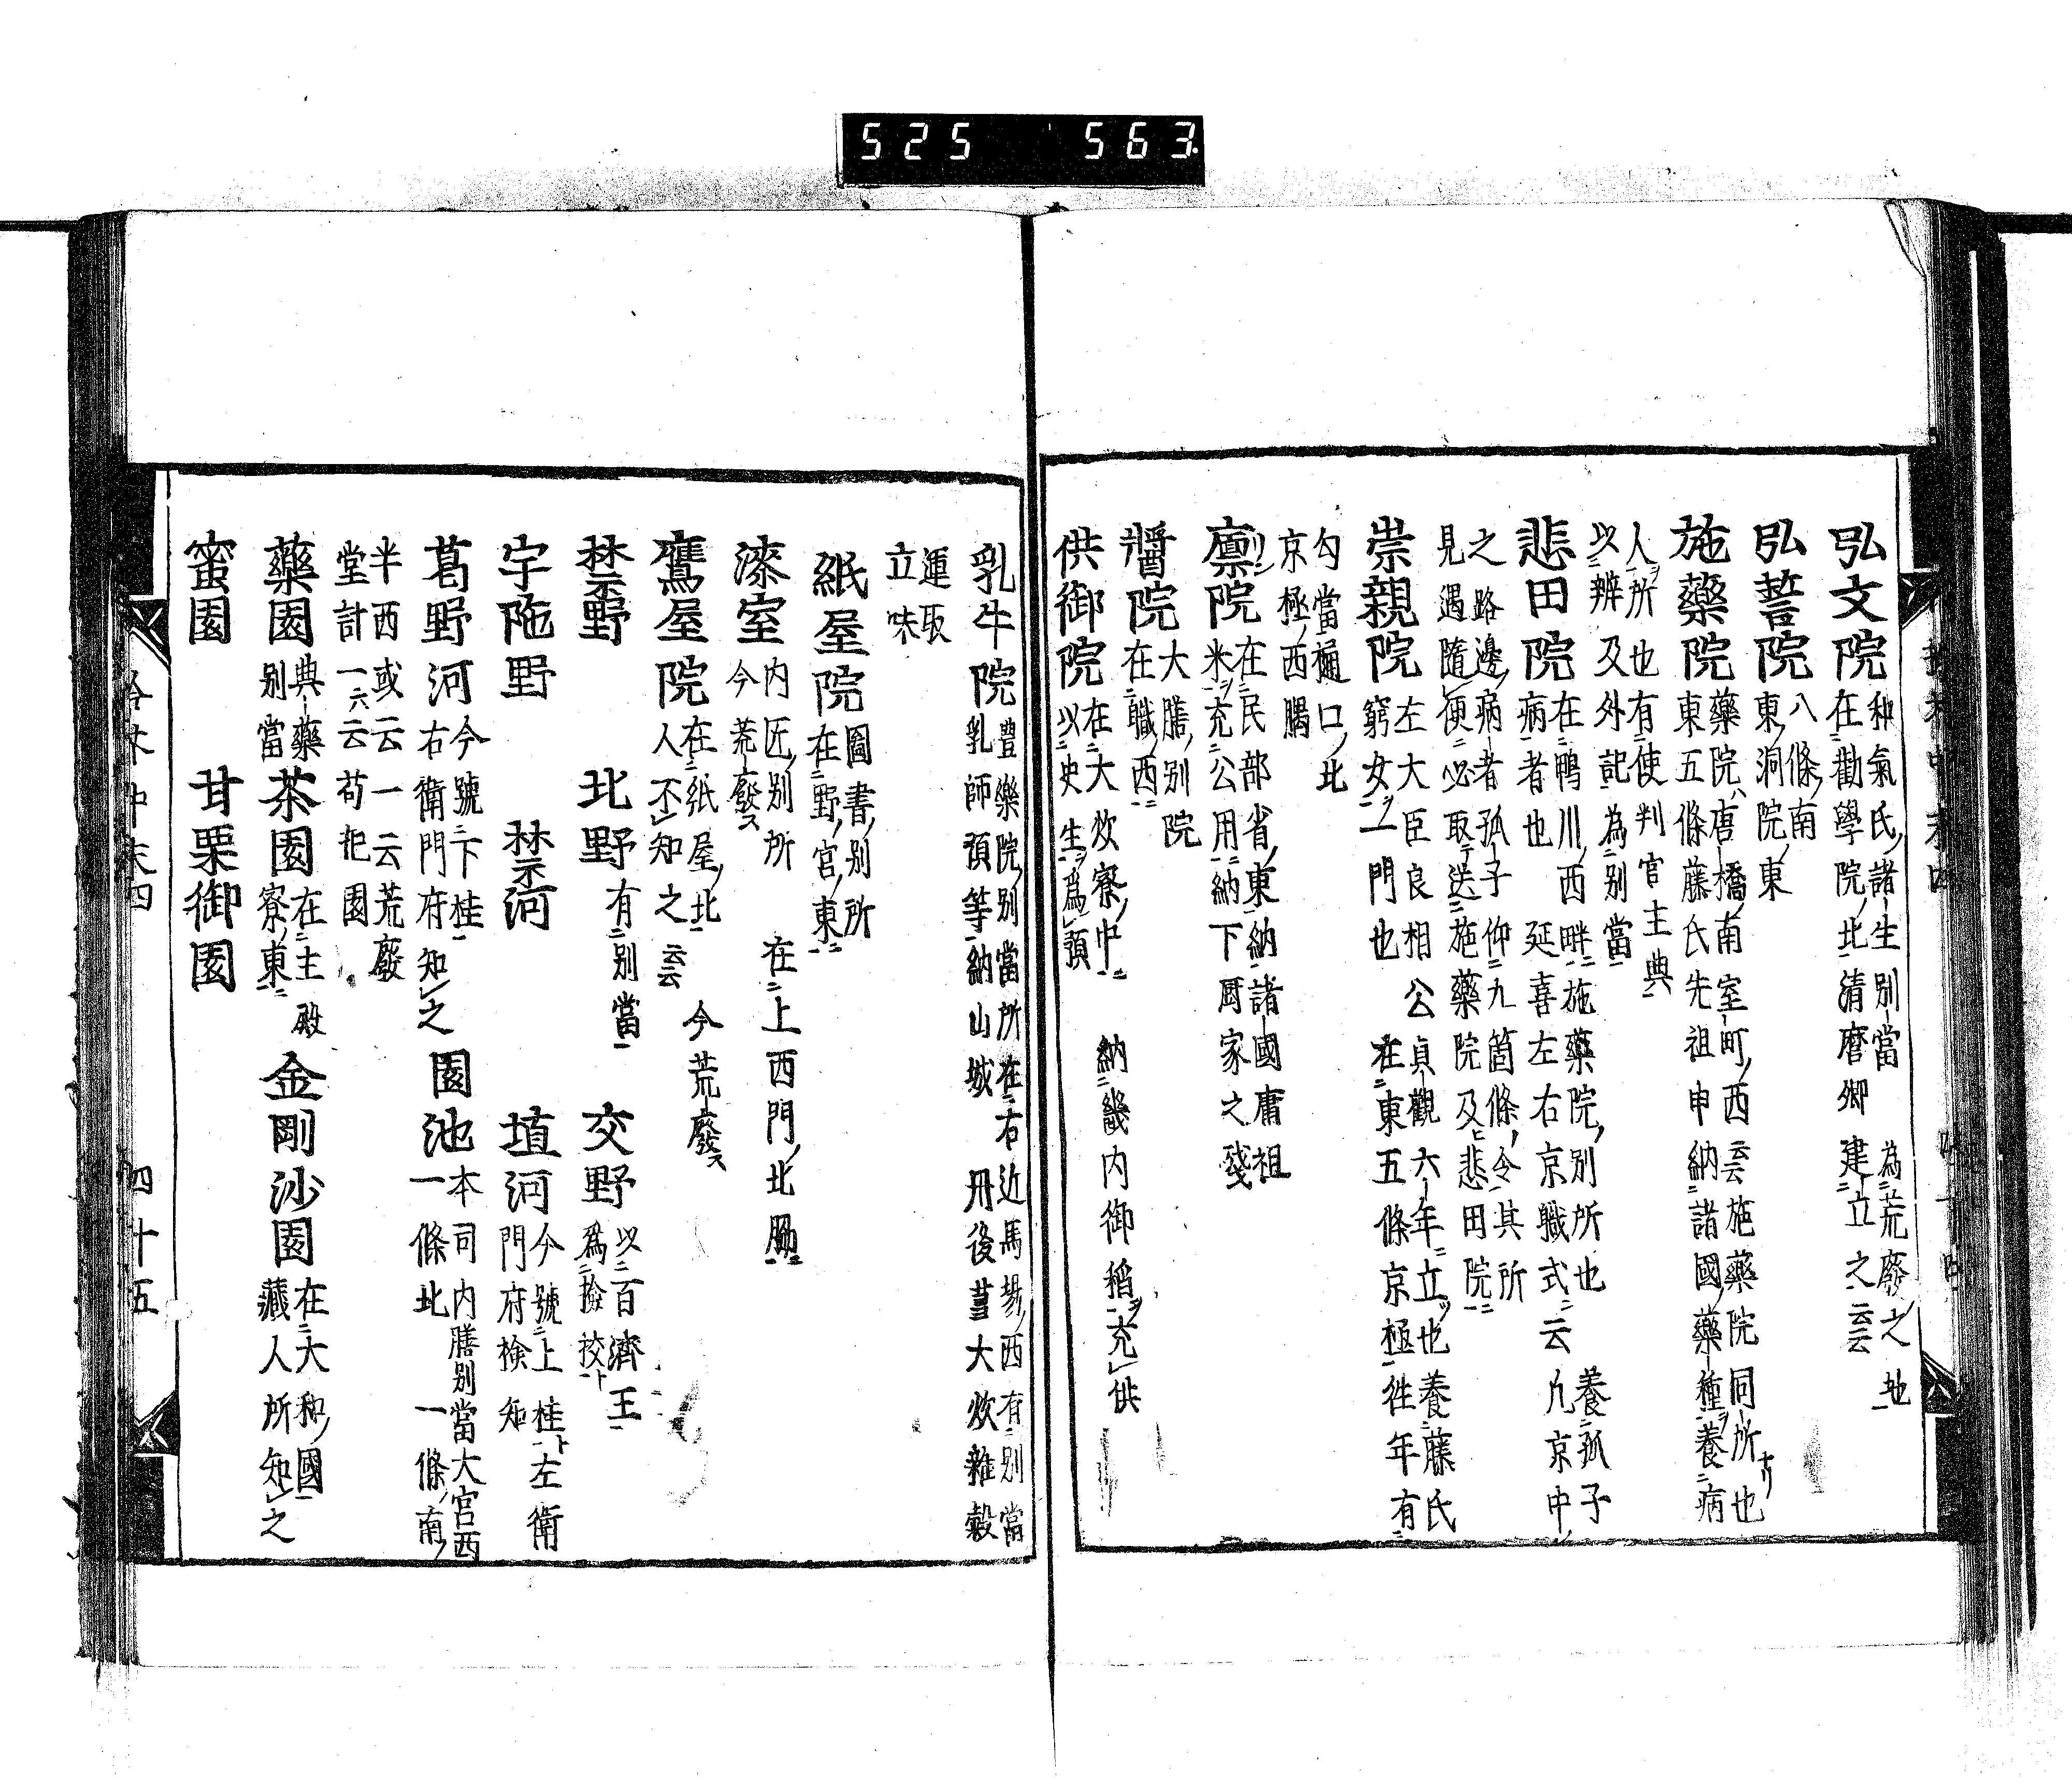 525 563
弘文院
和氣氏諸生別當為荒廢之地
在勸學院北清麿卿建立之云云
弘誓院
八條南
東洞院東
施藥院
藥院唐橋南室町西云云施藥院同所也
東五條藤氏先祖申納諸國藥種養病
人所也有使判官主典
以辨及外記為別當
悲田院
在鴨川西畔施藥院別所也養孤子
病者也延喜左右京職式云凡京中
之路邊病者孤子仰九箇條令其所
見遇隨便必取送施藥院及悲田院
崇親院
左大臣良相公貞觀六年立也養藤氏
窮女一門也在東五條京極往年有
勾當樋口北
京極西
廪院
在民部省東納諸國庸祖
米充公用納下厨家之殘
醬院
大膳別院
在職西
供御院
在大炊寮中納畿内御稻充供
以史生為預
乳牛院
豊樂院別當所在右近馬場西有別當
乳師預等納山城丹後
大炊雜穀
運取
立味
紙屋院
圖書別所
在野宮東
漆室
内匠別所在上西門北
今荒廢
鷹屋院
在紙屋北今荒廢
人不知之云云
禁野
北野
有別當
交野
以百濟王
為撿挍
宇陁野
禁河
埴河
今號上桂左衛
門府檢知
葛野河
今號下桂
右衛門府知之
園池
本司内膳別當大宮西
一條北一條南
半西或云一云荒廢
堂計一云苟杞園
藥園
典藥
別當
茶園
在主殿
寮東
金剛沙園
在大和國
藏人所知之
蜜園
甘栗御園
四十五